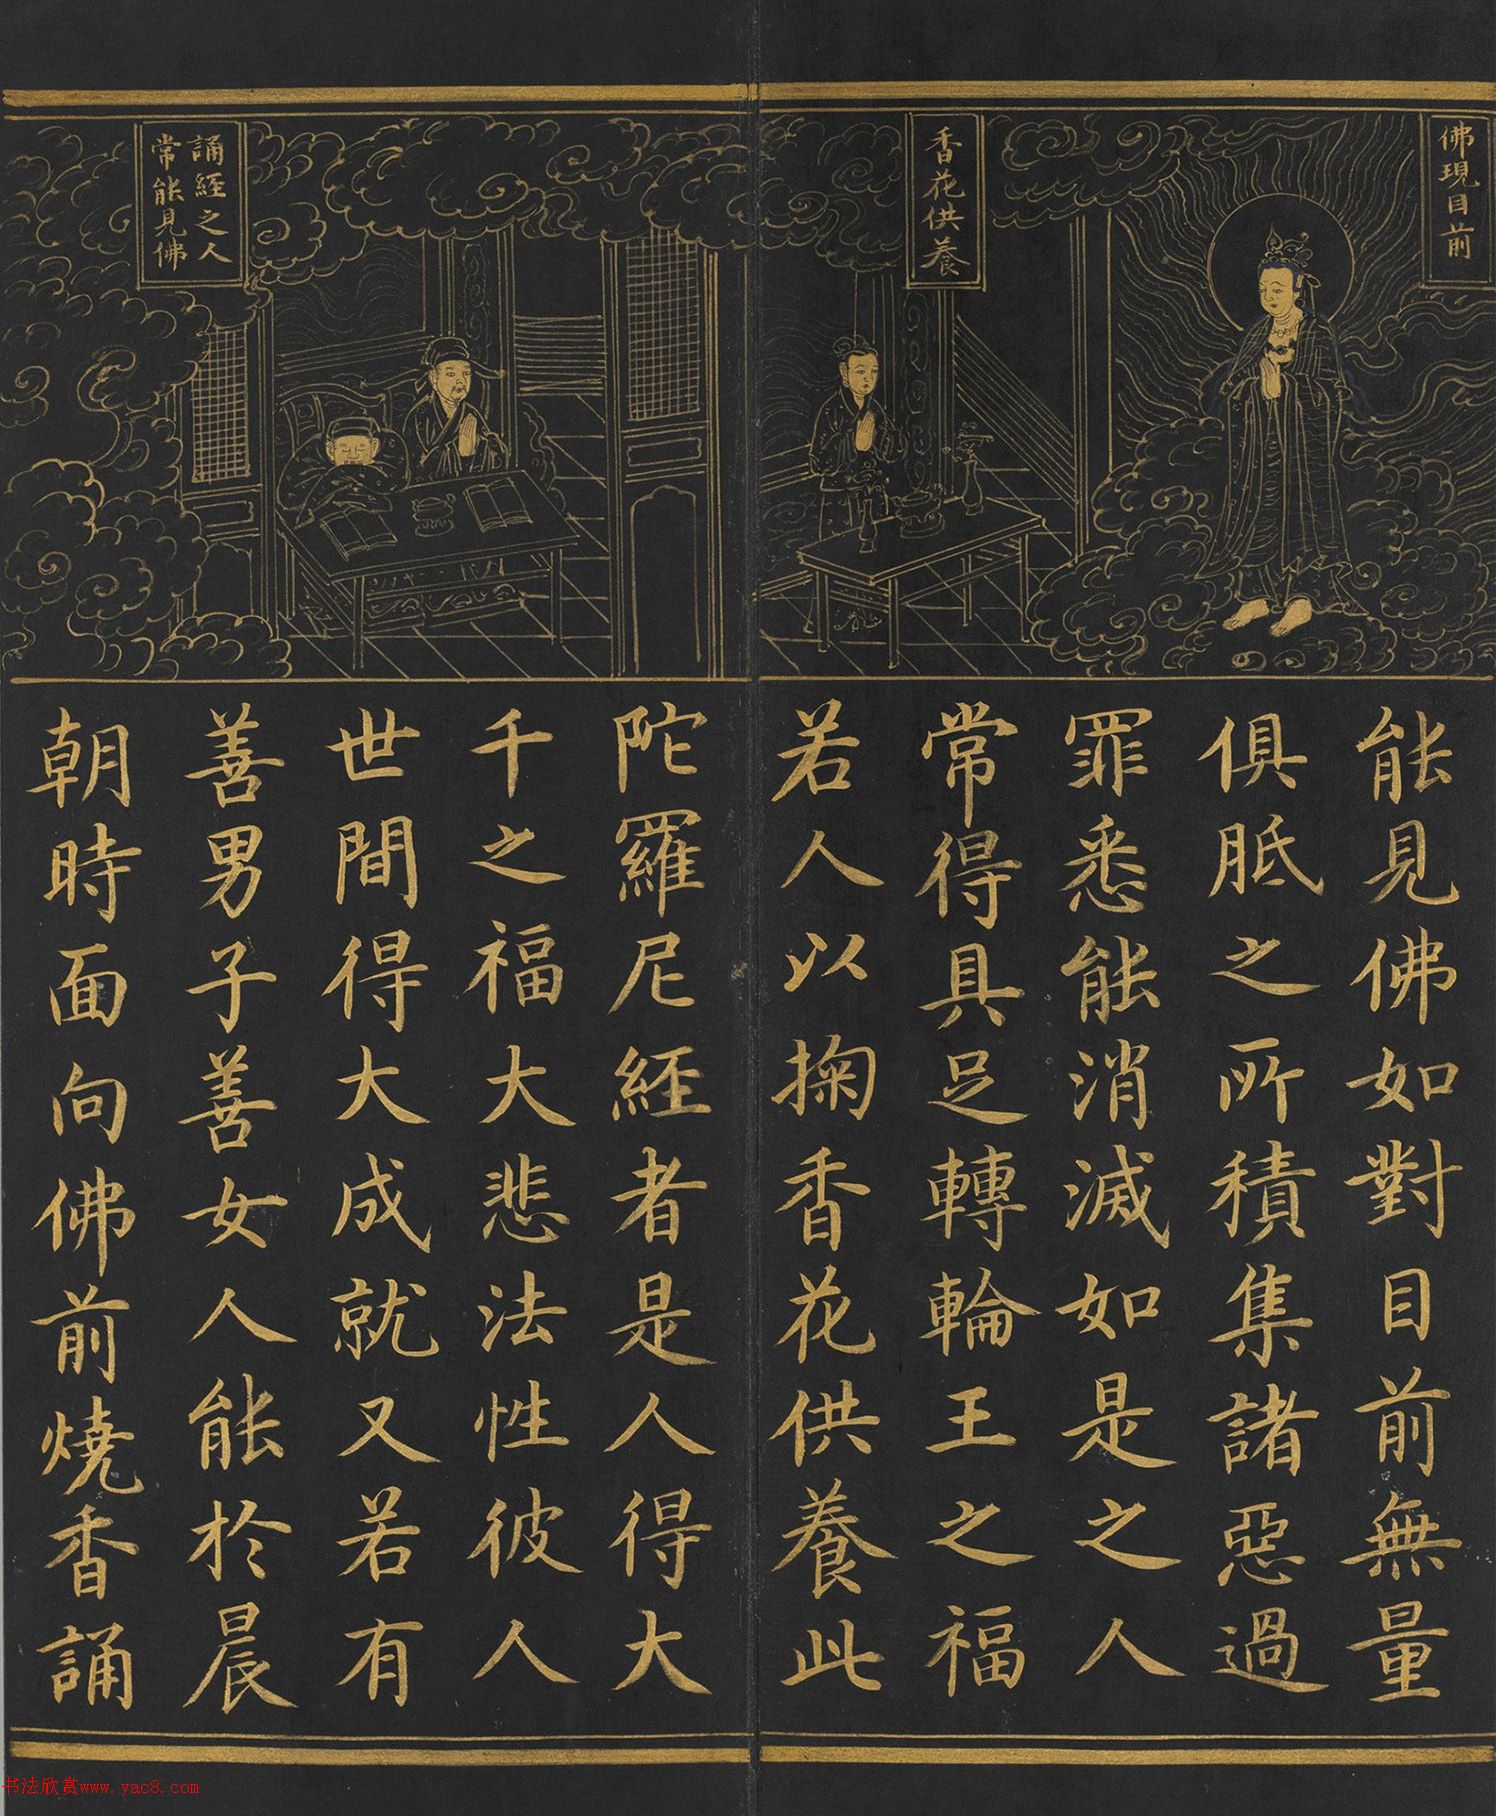 佛現目前
香花供養
誦經之人
常能見佛
能見佛如對目前無量
俱胝之所積集諸惡過
罪悉能消滅如是之人
常得具足轉輪王之福
若人以掬香花供養此
陀羅尼經者是人得大
千之福大悲法性彼人
世間得大成就又若有
善男子善女人能於晨
朝時面向佛前燒香誦
书法欣赏www.yac8.com